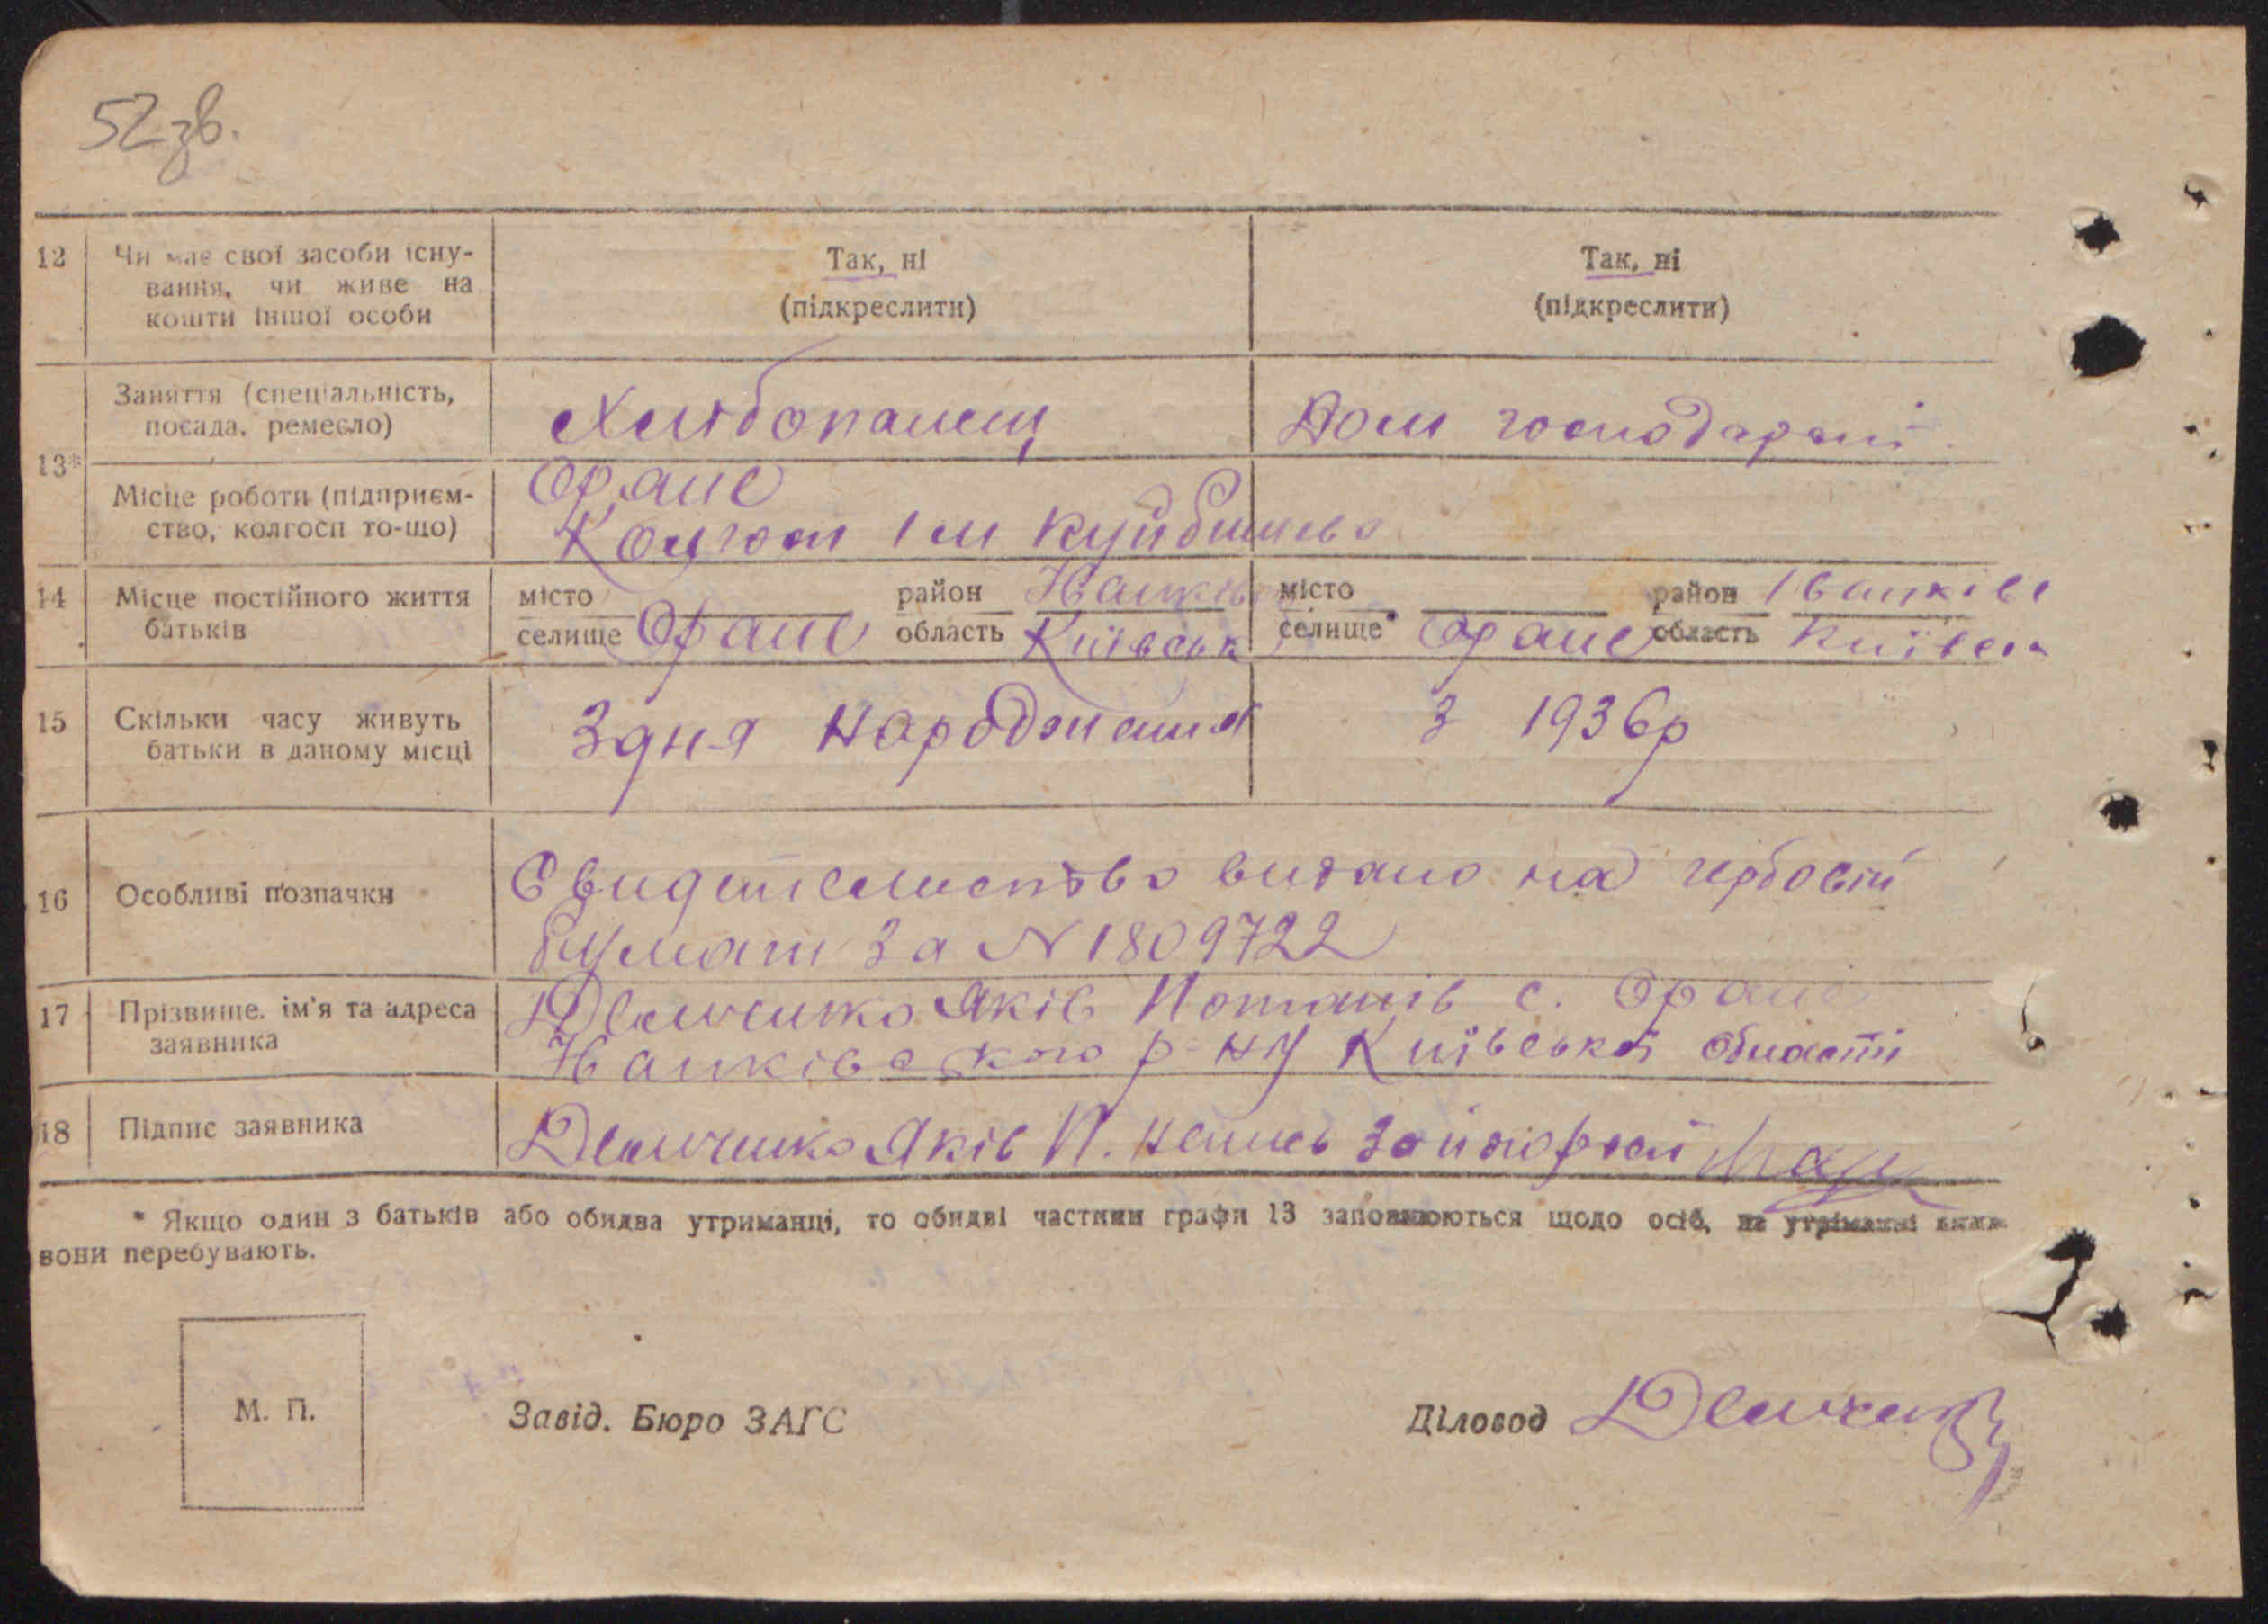 52 зв.
12 Чи має свої засоби існу-
вання, чи живе на
кошти іншої особи
Так, ні
(підкреслити)
Так, ні
(підкреслити)
13*
Заняття (спеціальність,
посада, ремесло)
Хлібопашец
Дом господарані
Місце роботи (підприєм-
ство, колгосп то-що)
Оране
Колгосп ім Куйбишева
14 Місце постійного життя
батьків
місто
селище Оране
район Іванків
область Київськ
місто
селище Оране
район Іванківс
область Київск
15 Скільки часу живуть
батьки в даному місці
З дня народження
З 1936р
16 Особливі позначки
Свидетельство видано на гербовій
бумаги За N 1809722
17 Прізвище, ім'я та адреса
заявника
Демченко Яків Потапів с. Оране
Іванківського р-ну Київської області
18 Підпис заявника
Демченко Яків П.
* Якщо один з батьків або обидва утриманці, то обидві частини графи 13 заповнюються щодо осіб, на утриманні яких
вони перебувають.
М. П.
Завід. Бюро ЗАГС
Діловод Демченко